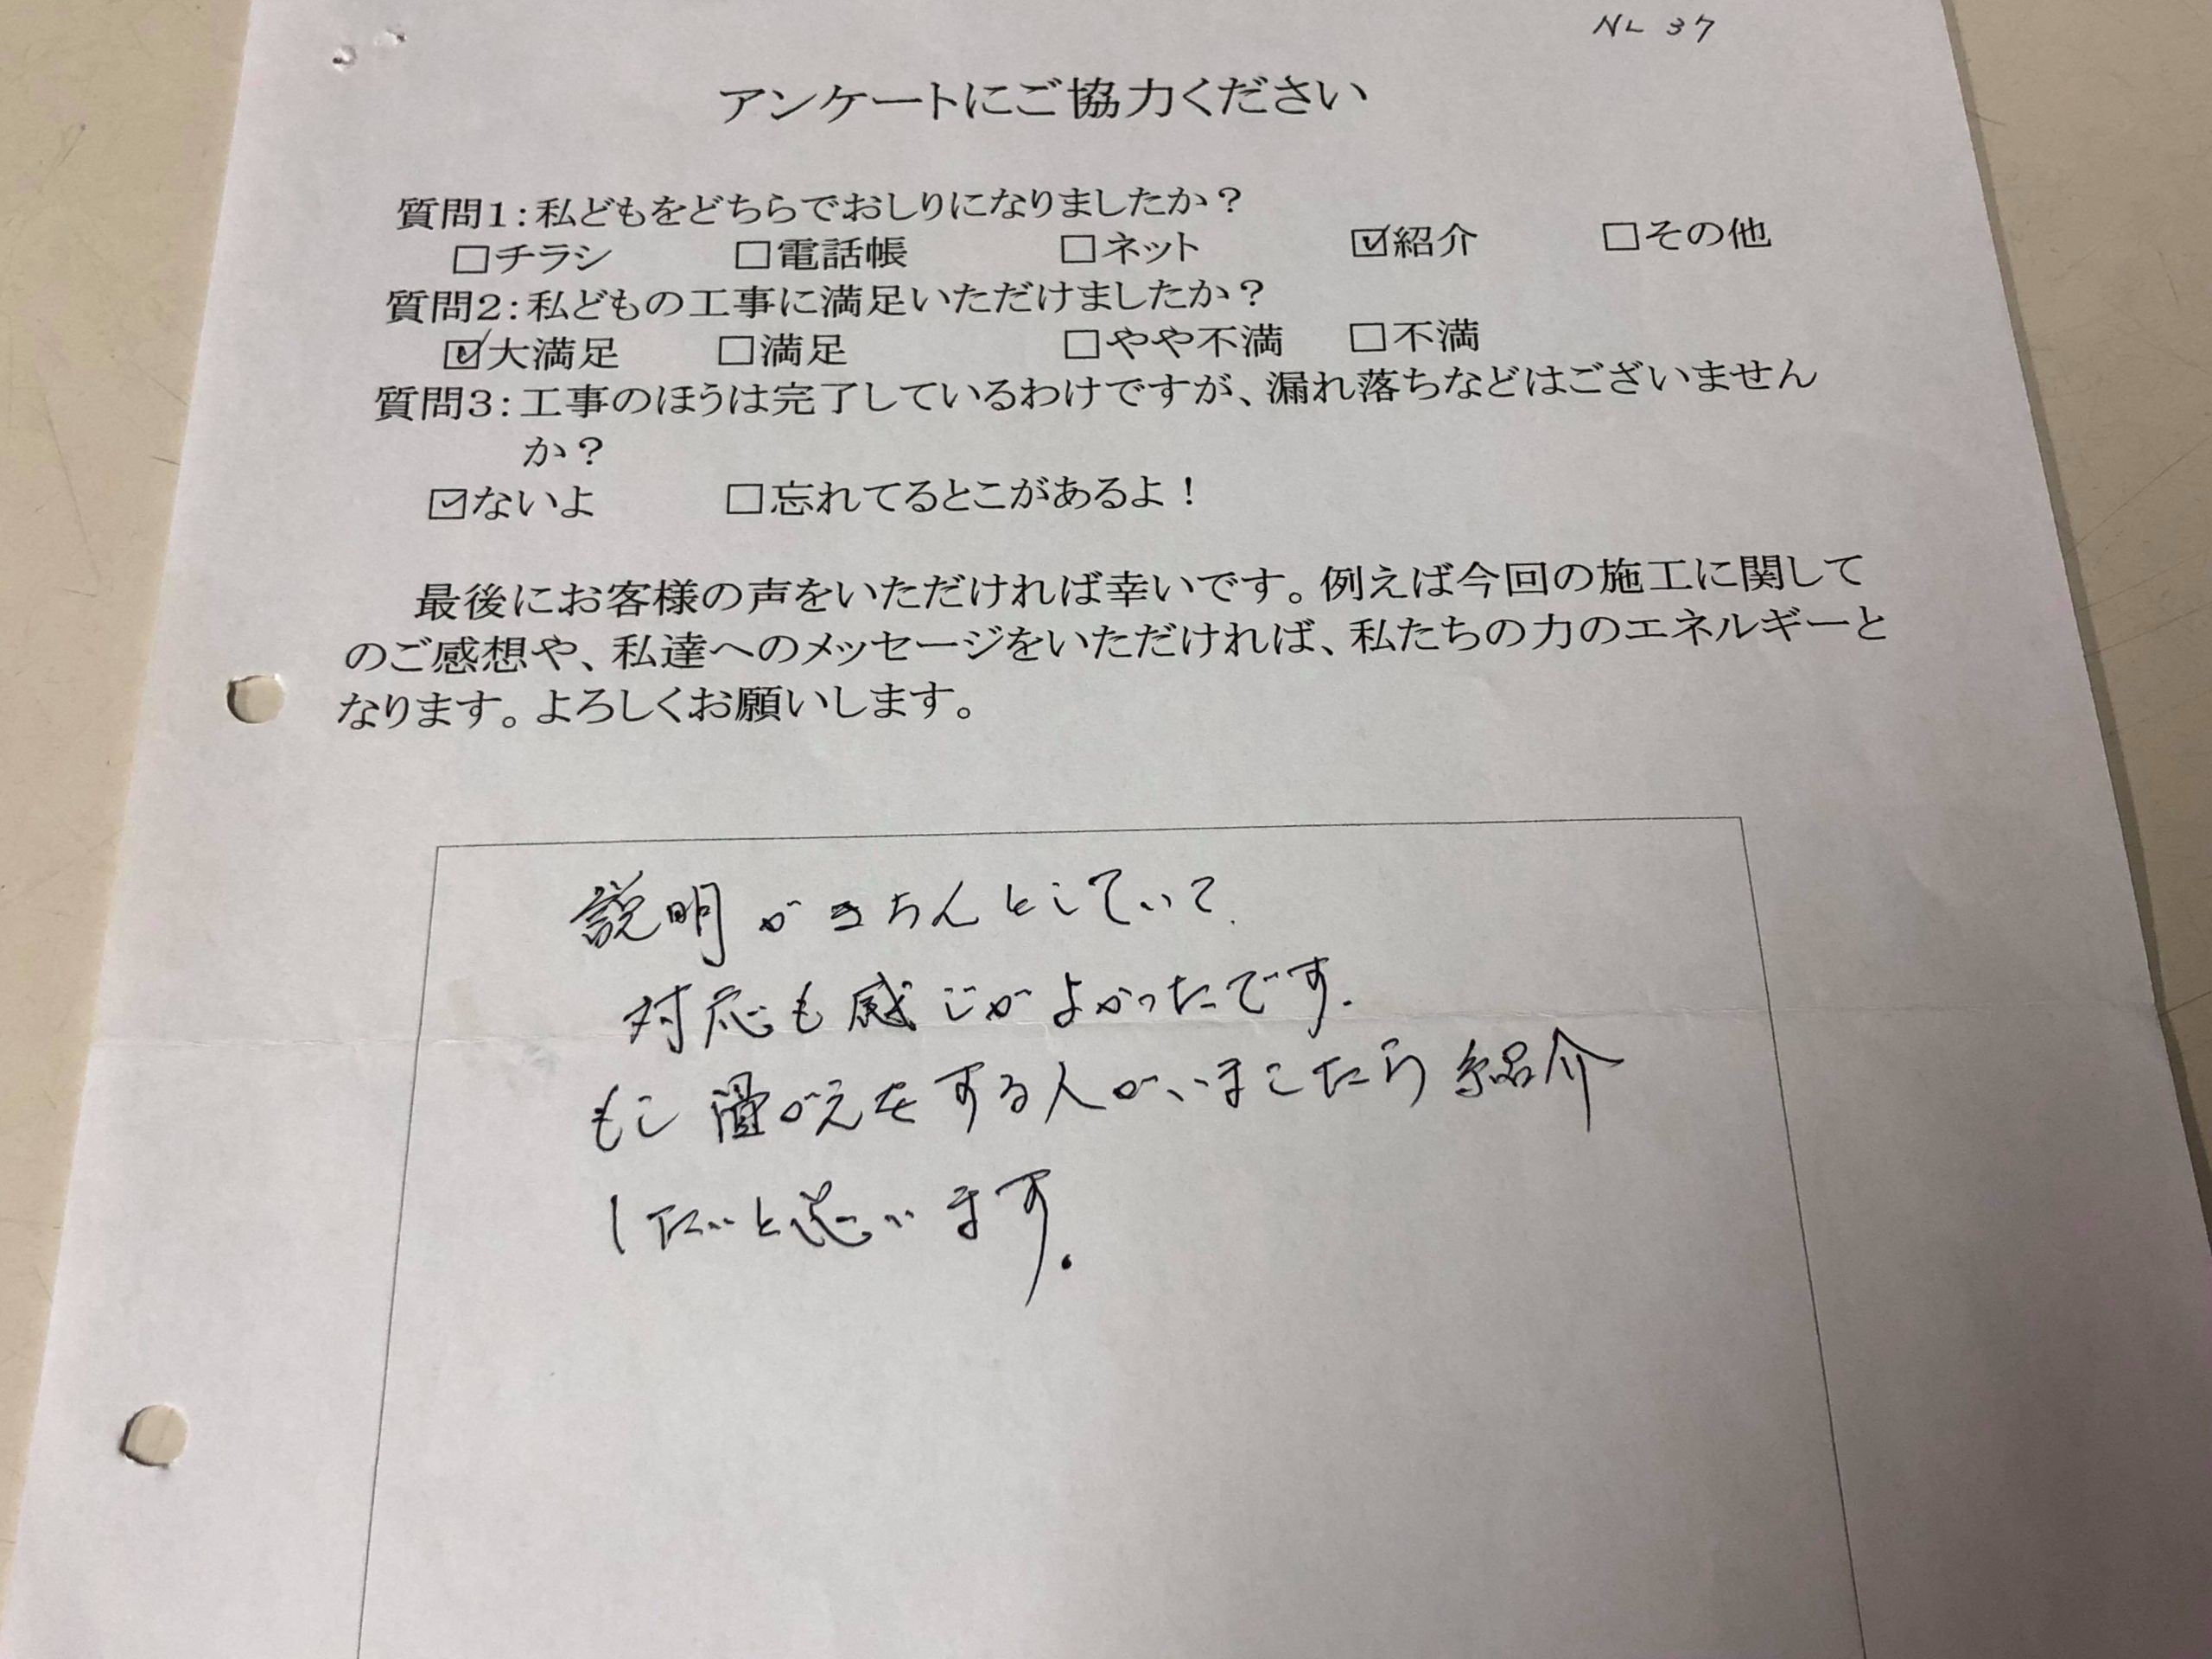 NL 37
アンケートにご協力ください
質問1：私どもをどちらでおしりになりましたか？
□チラシ □電話帳 □ネット ☑紹介 □その他
質問2：私どもの工事に満足いただけましたか？
☑大満足 □満足 □やや不満 □不満
質問3：工事のほうは完了しているわけですが、漏れ落ちなどはございません
か？
☑ないよ □忘れてるとこがあるよ！
最後にお客様の声をいただければ幸いです。例えば今回の施工に関して
のご感想や、私達へのメッセージをいただければ、私たちの力のエネルギーと
なります。よろしくお願いします。
説明がきちんとしていて、
対応も感じがよかったです。
もし畳がえをする人がいましたら紹介
したいと思います。